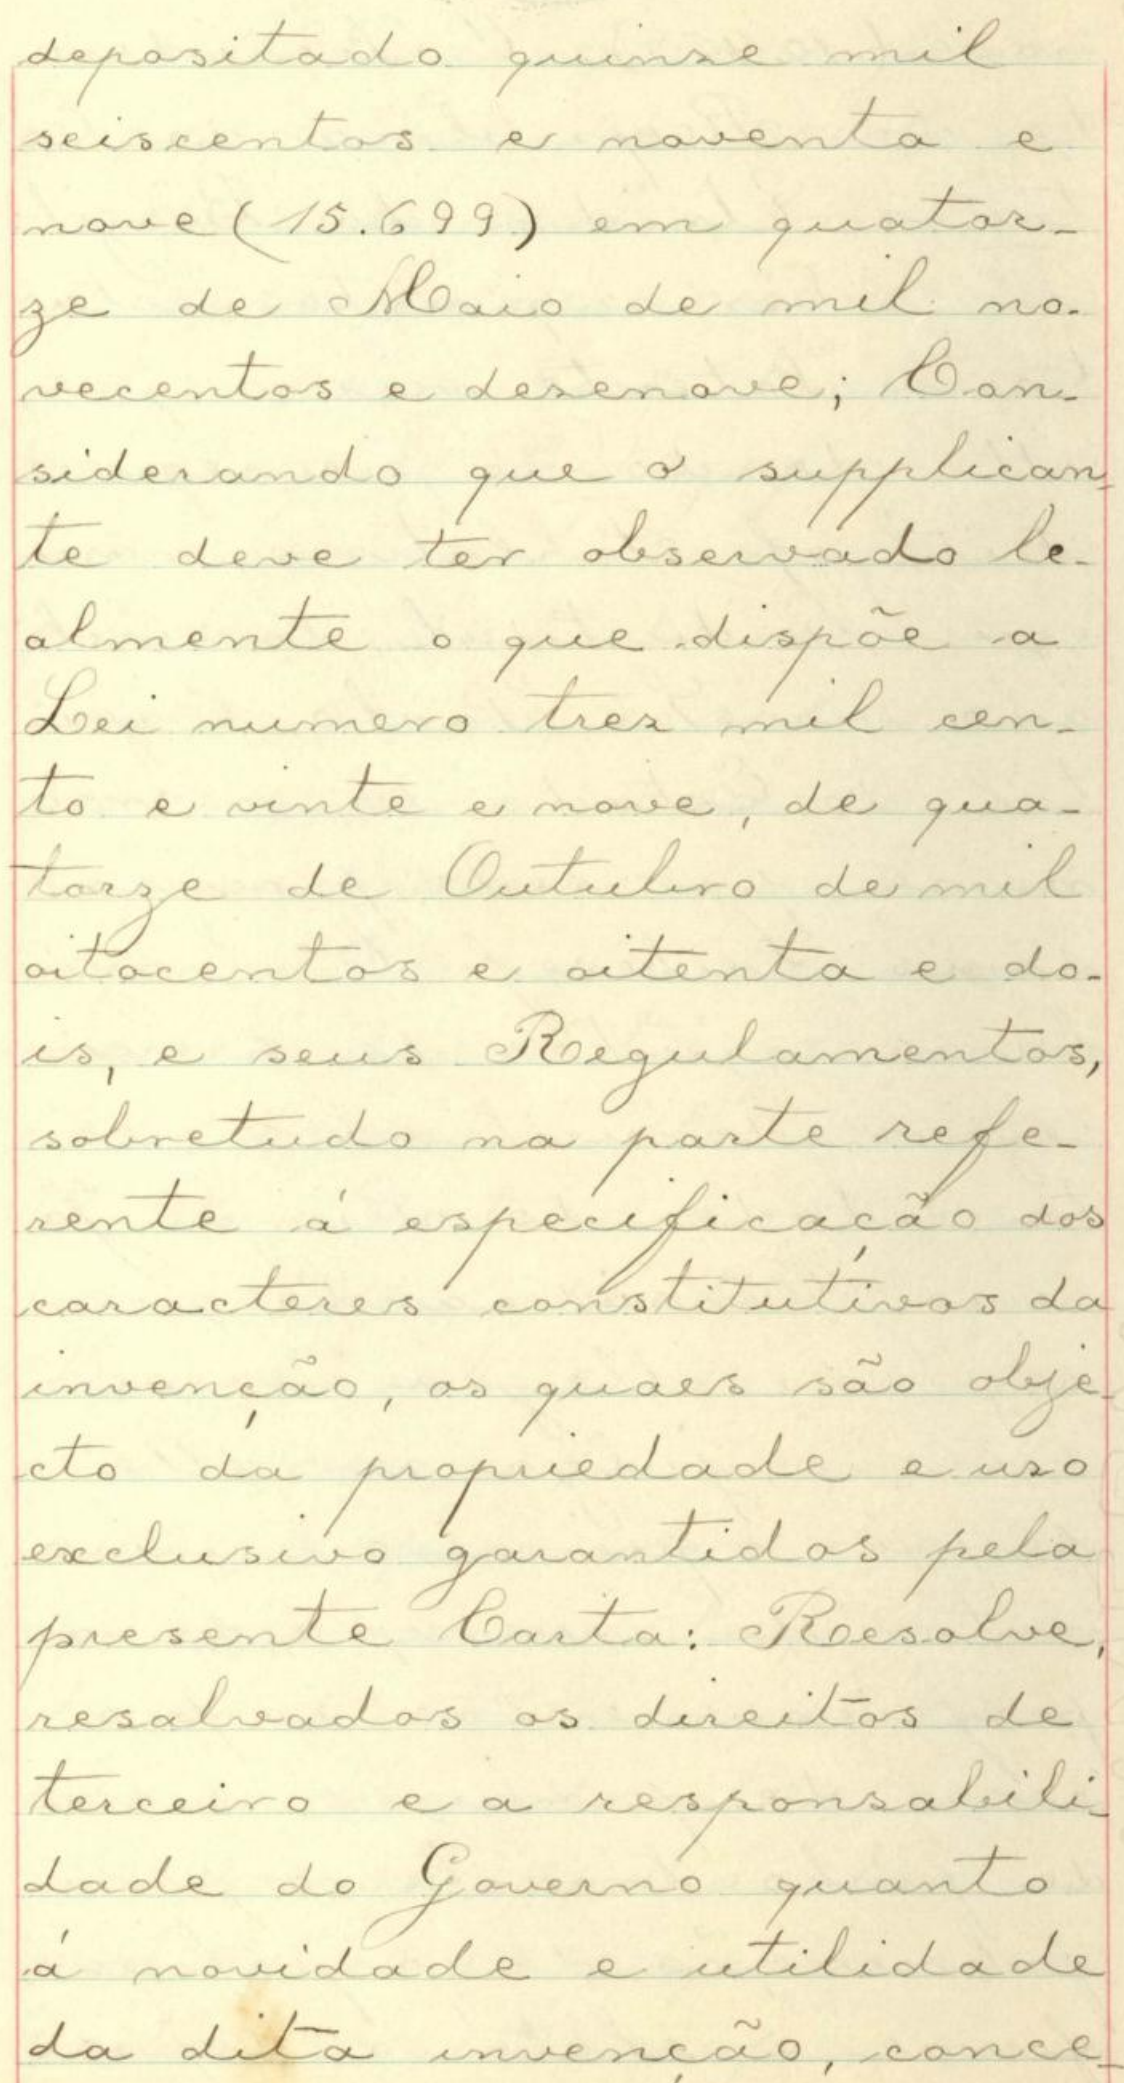 depositado quinze mil
seiscentos e noventa e
nove (15.699) em quator-
ze de Maio de mil no-
vecentos e dezenove; Con-
siderando que o supplican-
te deve ter observado le-
almente o que dispõe a
Lei numero trez mil cen-
to e vinte e nove, de qua-
torze de Outubro de mil
oitocentos e oitenta e do-
is, e seus Regulamentos,
sobretudo na parte refe-
rente á especificação dos
caracteres constitutivos da
invenção, os quaes são obje-
cto da propriedade e uso
exclusivo garantidos pela
presente Carta: Resolve,
resalvados os direitos de
terceiro e a responsabili-
dade do Governo quanto
á novidade e utilidade
da dita invenção, conce-